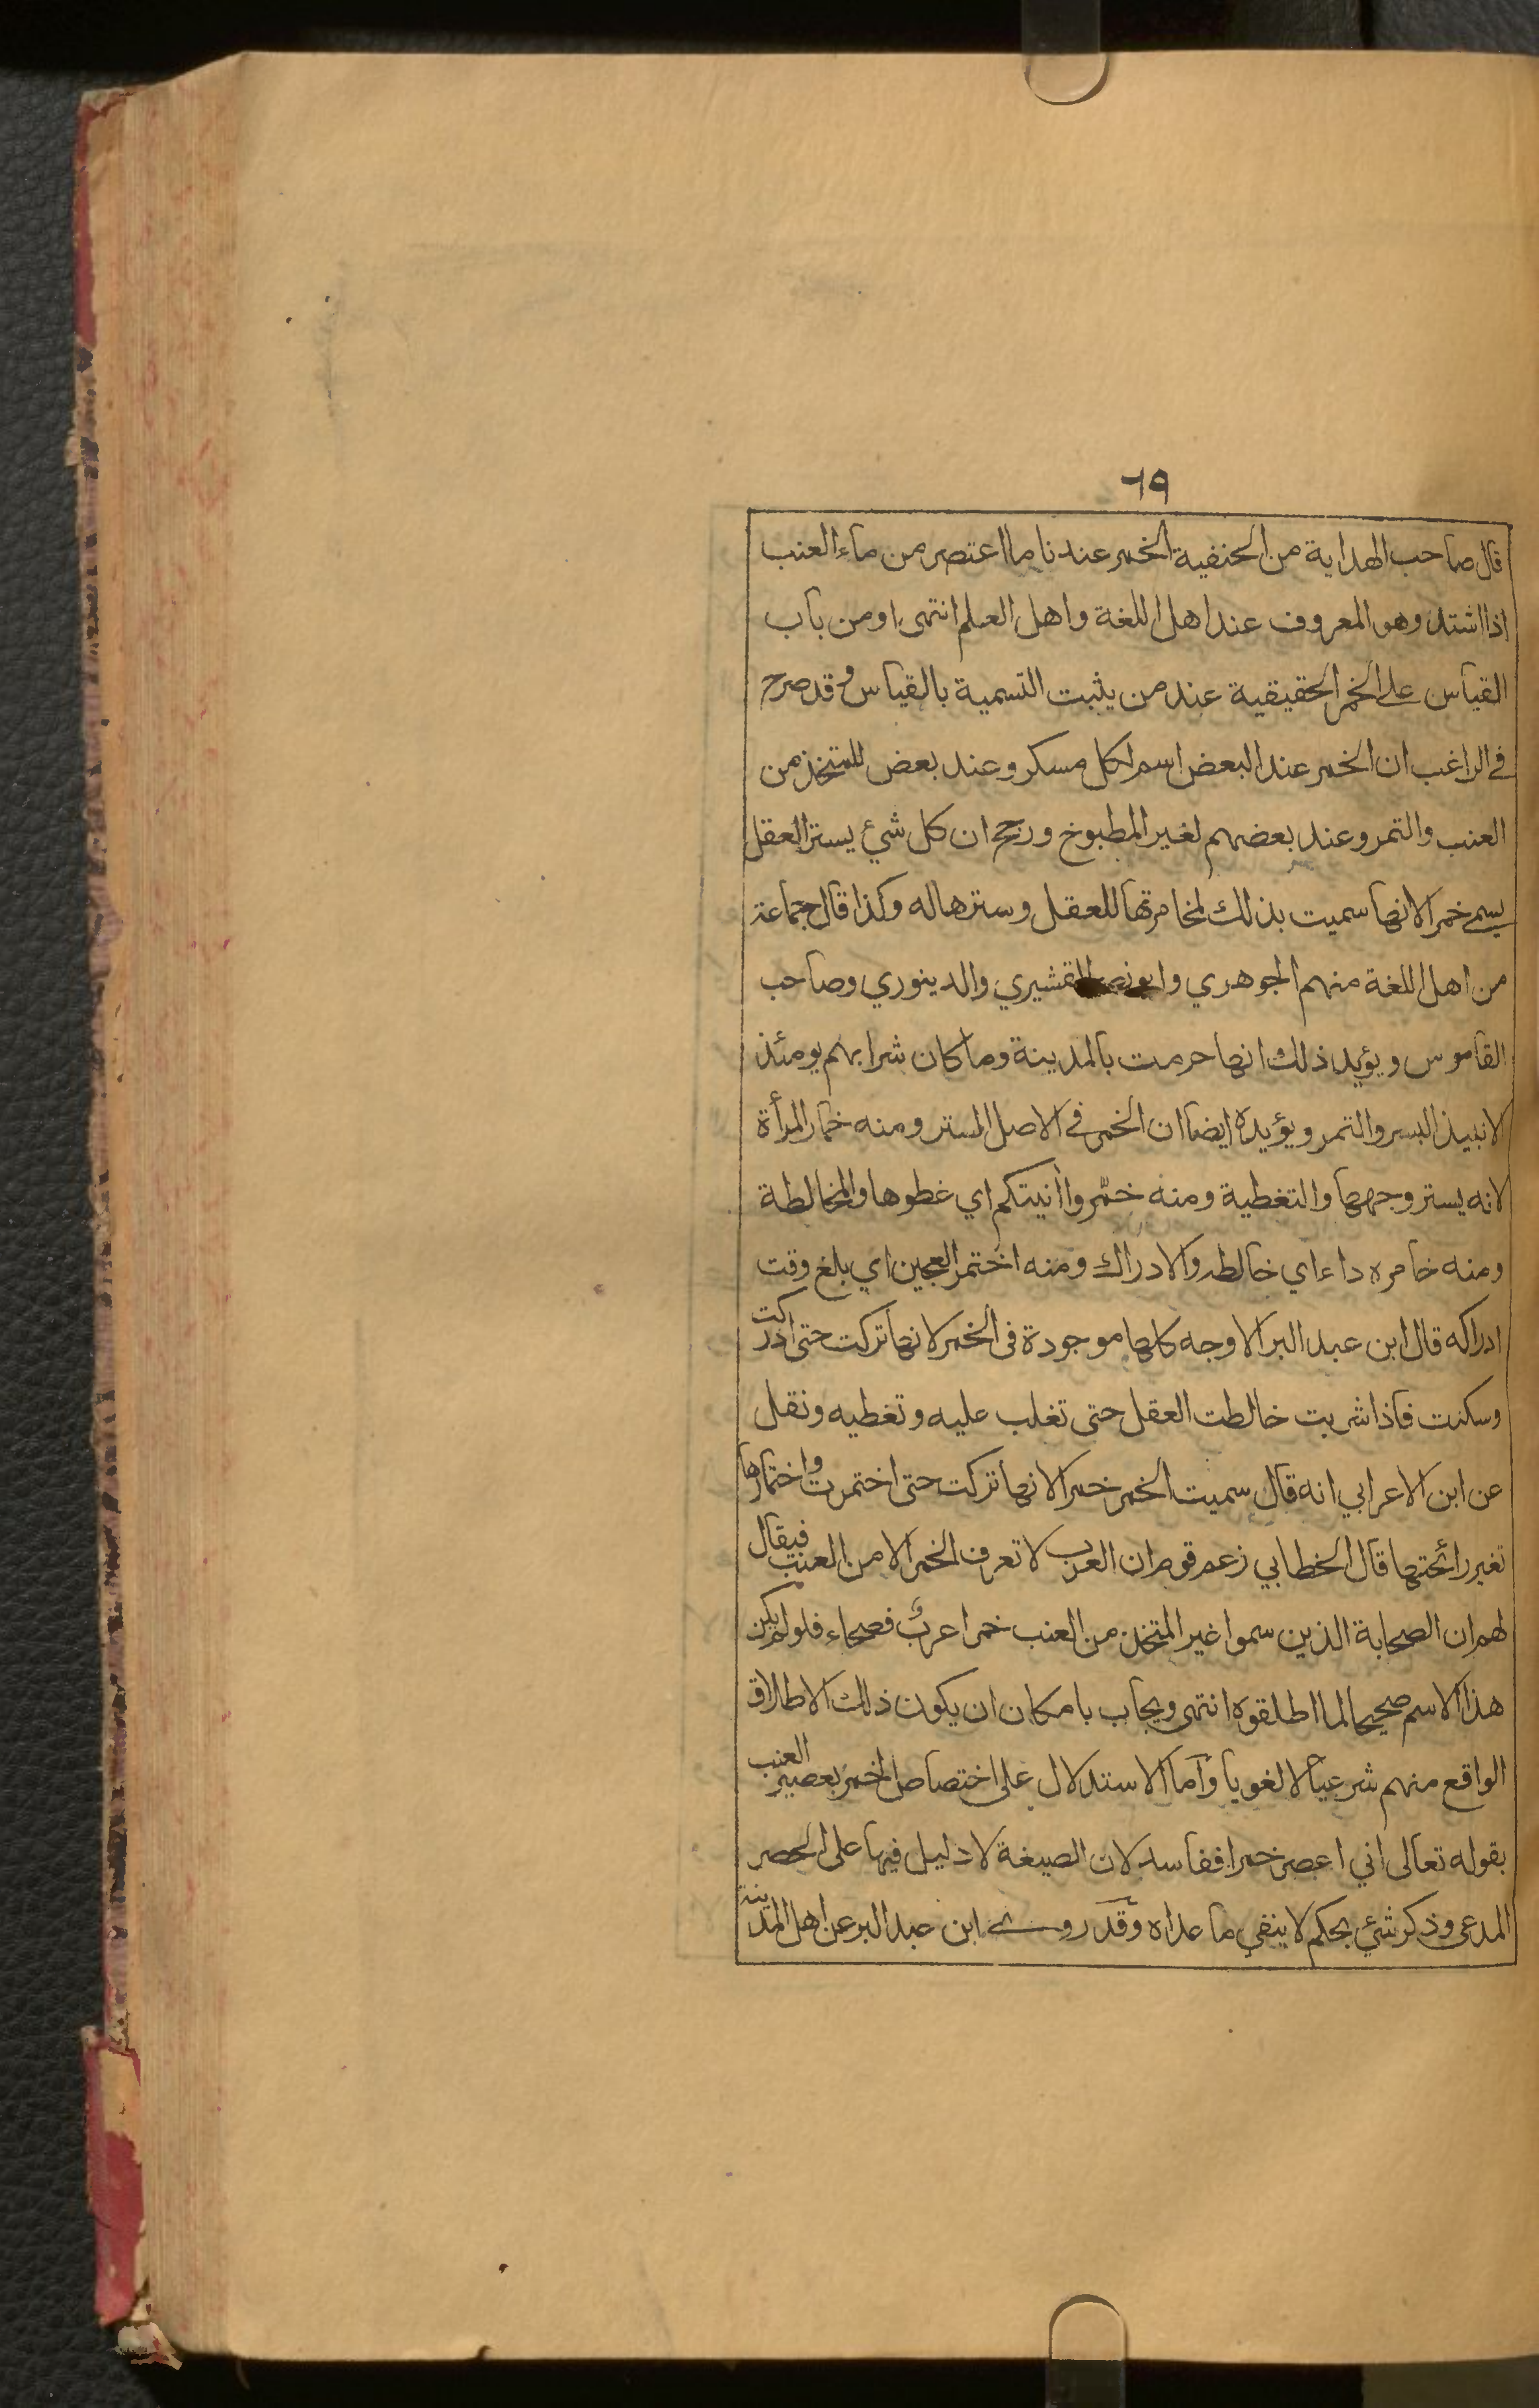 ٦٩
قال صاحب الهداية من الحنفية الخمر عندنا ما اعتصر من ماء العنب
اذا اشتد وهو المعروف عند اهل اللغة واهل العلم انتهى او من باب
القياس على الخمر الحقيقية عند من يثبت التسمية بالقياس وقد صرح
في الراغب ان الخمر عند البعض اسم لكل مسكر وعند بعض للمتخذ من
العنب والتمر وعند بعضهم لغير المطبوخ ورجح ان كل شيء يستر العقل
يسمى خمرا لانها سميت بذلك لمخامرتها للعقل وسترها له وكذا قال جماعة
من اهل اللغة منهم الجوهري وابو نصر القشيري والدينوري وصاحب
القاموس ويؤيد ذلك انها حرمت بالمدينة وما كان شرابهم يومئذ
الا نبيذ البسر والتمر ويؤيده ايضا ان الخمر في الاصل الستر ومنه خمار المرأة
لانه يستر وجهها والتغطية ومنه خمّروا أنيتكم اي غطوها والمخالطة
ومنه خامره داء اي خالطه والادراك ومنه اختمر العجين اي بلغ وقت
ادراكه قال ابن عبد البر الاوجه كلها موجودة فى الخمر لانها تركت حتى ادركت
وسكنت فاذا شربت خالطت العقل حتى تغلب عليه وتغطيه ونقل
عن ابن الاعرابي انه قال سميت الخمر خمرا لانها تركت حتى اختمرت واختمارها
تغير رائحتها قال الخطابي زعم قوم ان العرب لا تعرف الخمر الا من العنب فيقال
لهم ان الصحابة الذين سموا غير المتخذ من العنب خمرا عربٌ فصحاء فلو لم يكن
هذا الاسم صحيحا لما اطلقوه انتهى ويجاب بامكان ان يكون ذلك الاطلاق
الواقع منهم شرعيا لا لغويا وأما الاستدلال على اختصاص الخمر بعصير العنب
بقوله تعالى اني اعصر خمرا ففاسد لان الصيغة لا دليل فيها على الحصر
المدعى وذكر شيء بحكم لا ينفي ما عداه وقد روى ابن عبد البر عن اهل المدينة